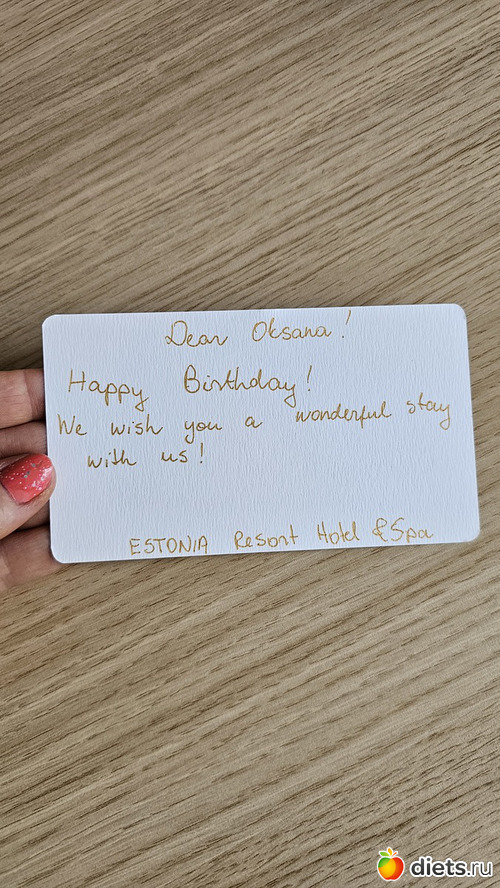 Dear Oksana!
Happy Birthday!
We wish you a wonderful stay
with us!
ESTONIA Resort Hotel & Spa
diets.ru